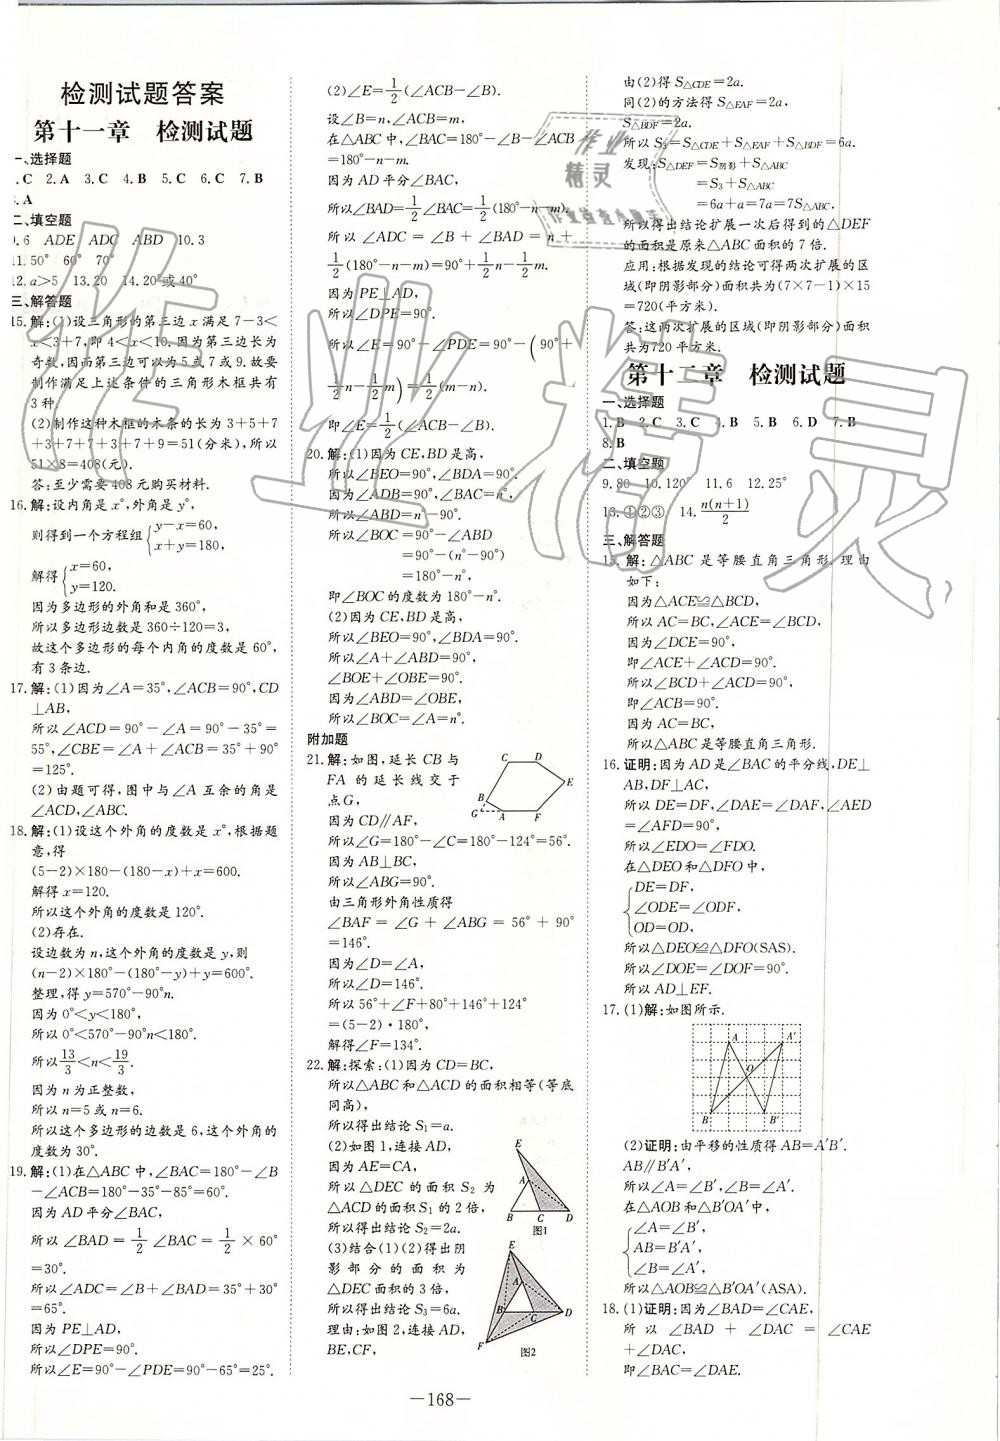 检测试题答案
第十一章 检测试题
一、选择题
.C 2.A 3.C 4.B 5.C 6.C 7.B
.A
二、填空题
9.6 ADE ADC ABD 10.3
11.50° 60° 70°
12.a>5 13.20 14.20°或40°
三、解答题
15.解:(1)设三角形的第三边x满足7-3<
x<3+7,即4<x<10.因为第三边长为
奇数,因而第三边可以为5或7或9.故要
制作满足上述条件的三角形木框共有
3种.
(2)制作这种木框的木条的长为3+5+7
+3+7+7+3+7+9=51(分米),所以
51×8=408(元).
答:至少需要408元购买材料.
16.解:设内角是x°,外角是y°,
则得到一个方程组{y-x=60,
x+y=180,
解得{x=60,
y=120.
因为多边形的外角和是360°,
所以多边形边数是360÷120=3,
故这个多边形的每个内角的度数是60°,
有3条边.
17.解:(1)因为∠A=35°,∠ACB=90°,CD
⊥AB,
所以∠ACD=90°-∠A=90°-35°=
55°,∠CBE=∠A+∠ACB=35°+90°
=125°.
(2)由题可得,图中与∠A互余的角是
∠ACD,∠ABC.
18.解:(1)设这个外角的度数是x°,根据题
意,得
(5-2)×180-(180-x)+x=600.
解得x=120.
所以这个外角的度数是120°.
(2)存在.
设边数为n,这个外角的度数是y,则
(n-2)×180°-(180°-y)+y=600°.
整理,得y=570°-90°n.
因为0°<y<180°,
所以0°<570°-90°n<180°.
所以13/3<n<19/3.
因为n为正整数,
所以n=5或n=6.
所以这个多边形的边数是6,这个外角的
度数为30°.
19.解:(1)在△ABC中,∠BAC=180°-∠B
-∠ACB=180°-35°-85°=60°.
因为AD平分∠BAC,
所以∠BAD=1/2∠BAC=1/2×60°
=30°.
所以∠ADC=∠B+∠BAD=35°+30°
=65°.
因为PE⊥AD,
所以∠DPE=90°.
所以∠E=90°-∠PDE=90°-65°=25°.
(2)∠E=1/2(∠ACB-∠B).
设∠B=n,∠ACB=m,
在△ABC中,∠BAC=180°-∠B-∠ACB
=180°-n-m.
因为AD平分∠BAC,
所以∠BAD=1/2∠BAC=1/2(180°-n-m).
所以∠ADC=∠B+∠BAD=n+
1/2(180°-n-m)=90°+1/2n-1/2m.
因为PE⊥AD,
所以∠DPE=90°.
所以∠E=90°-∠PDE=90°-(90°+
1/2n-1/2m)=1/2(m-n).
即∠E=1/2(∠ACB-∠B).
20.解:(1)因为CE,BD是高,
所以∠BEO=90°,∠BDA=90°.
因为∠ADB=90°,∠BAC=n°,
所以∠ABD=n°-90°.
所以∠BOC=90°-∠ABD
=90°-(n°-90°)
=180°-n°.
即∠BOC的度数为180°-n°.
(2)因为CE,BD是高,
所以∠BEO=90°,∠BDA=90°.
所以∠A+∠ABD=90°,
∠BOE+∠OBE=90°.
因为∠ABD=∠OBE,
所以∠BOC=∠A=n°.
附加题
21.解:如图,延长CB与
FA的延长线交于
点G,
C D
E
B
G A F
因为CD∥AF,
所以∠G=180°-∠C=180°-124°=56°.
因为AB⊥BC,
所以∠ABG=90°.
由三角形外角性质得
∠BAF=∠G+∠ABG=56°+90°
=146°.
因为∠D=∠A,
所以∠D=146°.
所以56°+∠F+80°+146°+124°
=(5-2)·180°,
解得∠F=134°.
22.解:探索:(1)因为CD=BC,
所以△ABC和△ACD的面积相等(等底
同高),
所以得出结论S₁=a.
(2)如图1,连接AD,
因为AE=CA,
所以△DEC的面积S₂为
△ACD的面积S₁的2倍,
所以得出结论S₂=2a.
E
A
B C D
图1
(3)结合(1)(2)得出阴
影部分的面积为
△DEC面积的3倍,
所以得出结论S₃=6a.
理由:如图2,连接AD,
BE,CF,
E
A
B C D
F
图2
由(2)得S△CDE=2a.
同(2)的方法得S△EAF=2a,
S△BDF=2a.
所以S₃=S△CDE+S△EAF+S△BDF=6a.
发现:S△DEF=S阴影+S△ABC
=S₃+S△ABC
=6a+a=7a=7S△ABC.
所以得出结论扩展一次后得到的△DEF
的面积是原来△ABC面积的7倍.
应用:根据发现的结论可得两次扩展的区
域(即阴影部分)面积共为(7×7-1)×15
=720(平方米).
答:这两次扩展的区域(即阴影部分)面积
共为720平方米.
第十二章 检测试题
一、选择题
1.B 2.C 3.C 4.B 5.B 6.D 7.B
8.B
二、填空题
9.80 10.120° 11.6 12.25°
13.①②③ 14.n(n+1)/2
三、解答题
15.解:△ABC是等腰直角三角形.理由
如下:
因为△ACE≌△BCD,
所以AC=BC,∠ACE=∠BCD.
因为∠DCE=90°.
即∠ACE+∠ACD=90°.
所以∠BCD+∠ACD=90°.
即∠ACB=90°.
因为AC=BC,
所以△ABC是等腰直角三角形.
16.证明:因为AD是∠BAC的平分线,DE⊥
AB,DF⊥AC,
所以DE=DF,∠DAE=∠DAF,∠AED
=∠AFD=90°,
所以∠EDO=∠FDO.
在△DEO和△DFO中,
{DE=DF,
∠ODE=∠ODF,
OD=OD,
所以△DEO≌△DFO(SAS).
所以∠DOE=∠DOF=90°.
所以AD⊥EF.
17.(1)解:如图所示.
A A′
O
B B′
(2)证明:由平移的性质得AB=A′B′.
AB∥B′A′,
所以∠A=∠B′,∠B=∠A′,
在△AOB和△B′OA′中,
{∠A=∠B′,
AB=B′A′,
∠B=∠A′,
所以△AOB≌△B′OA′(ASA).
18.(1)证明:因为∠BAD=∠CAE,
所以∠BAD+∠DAC=∠CAE
+∠DAC.
即∠BAC=∠DAE.
—168—
作业精灵
作业
精灵